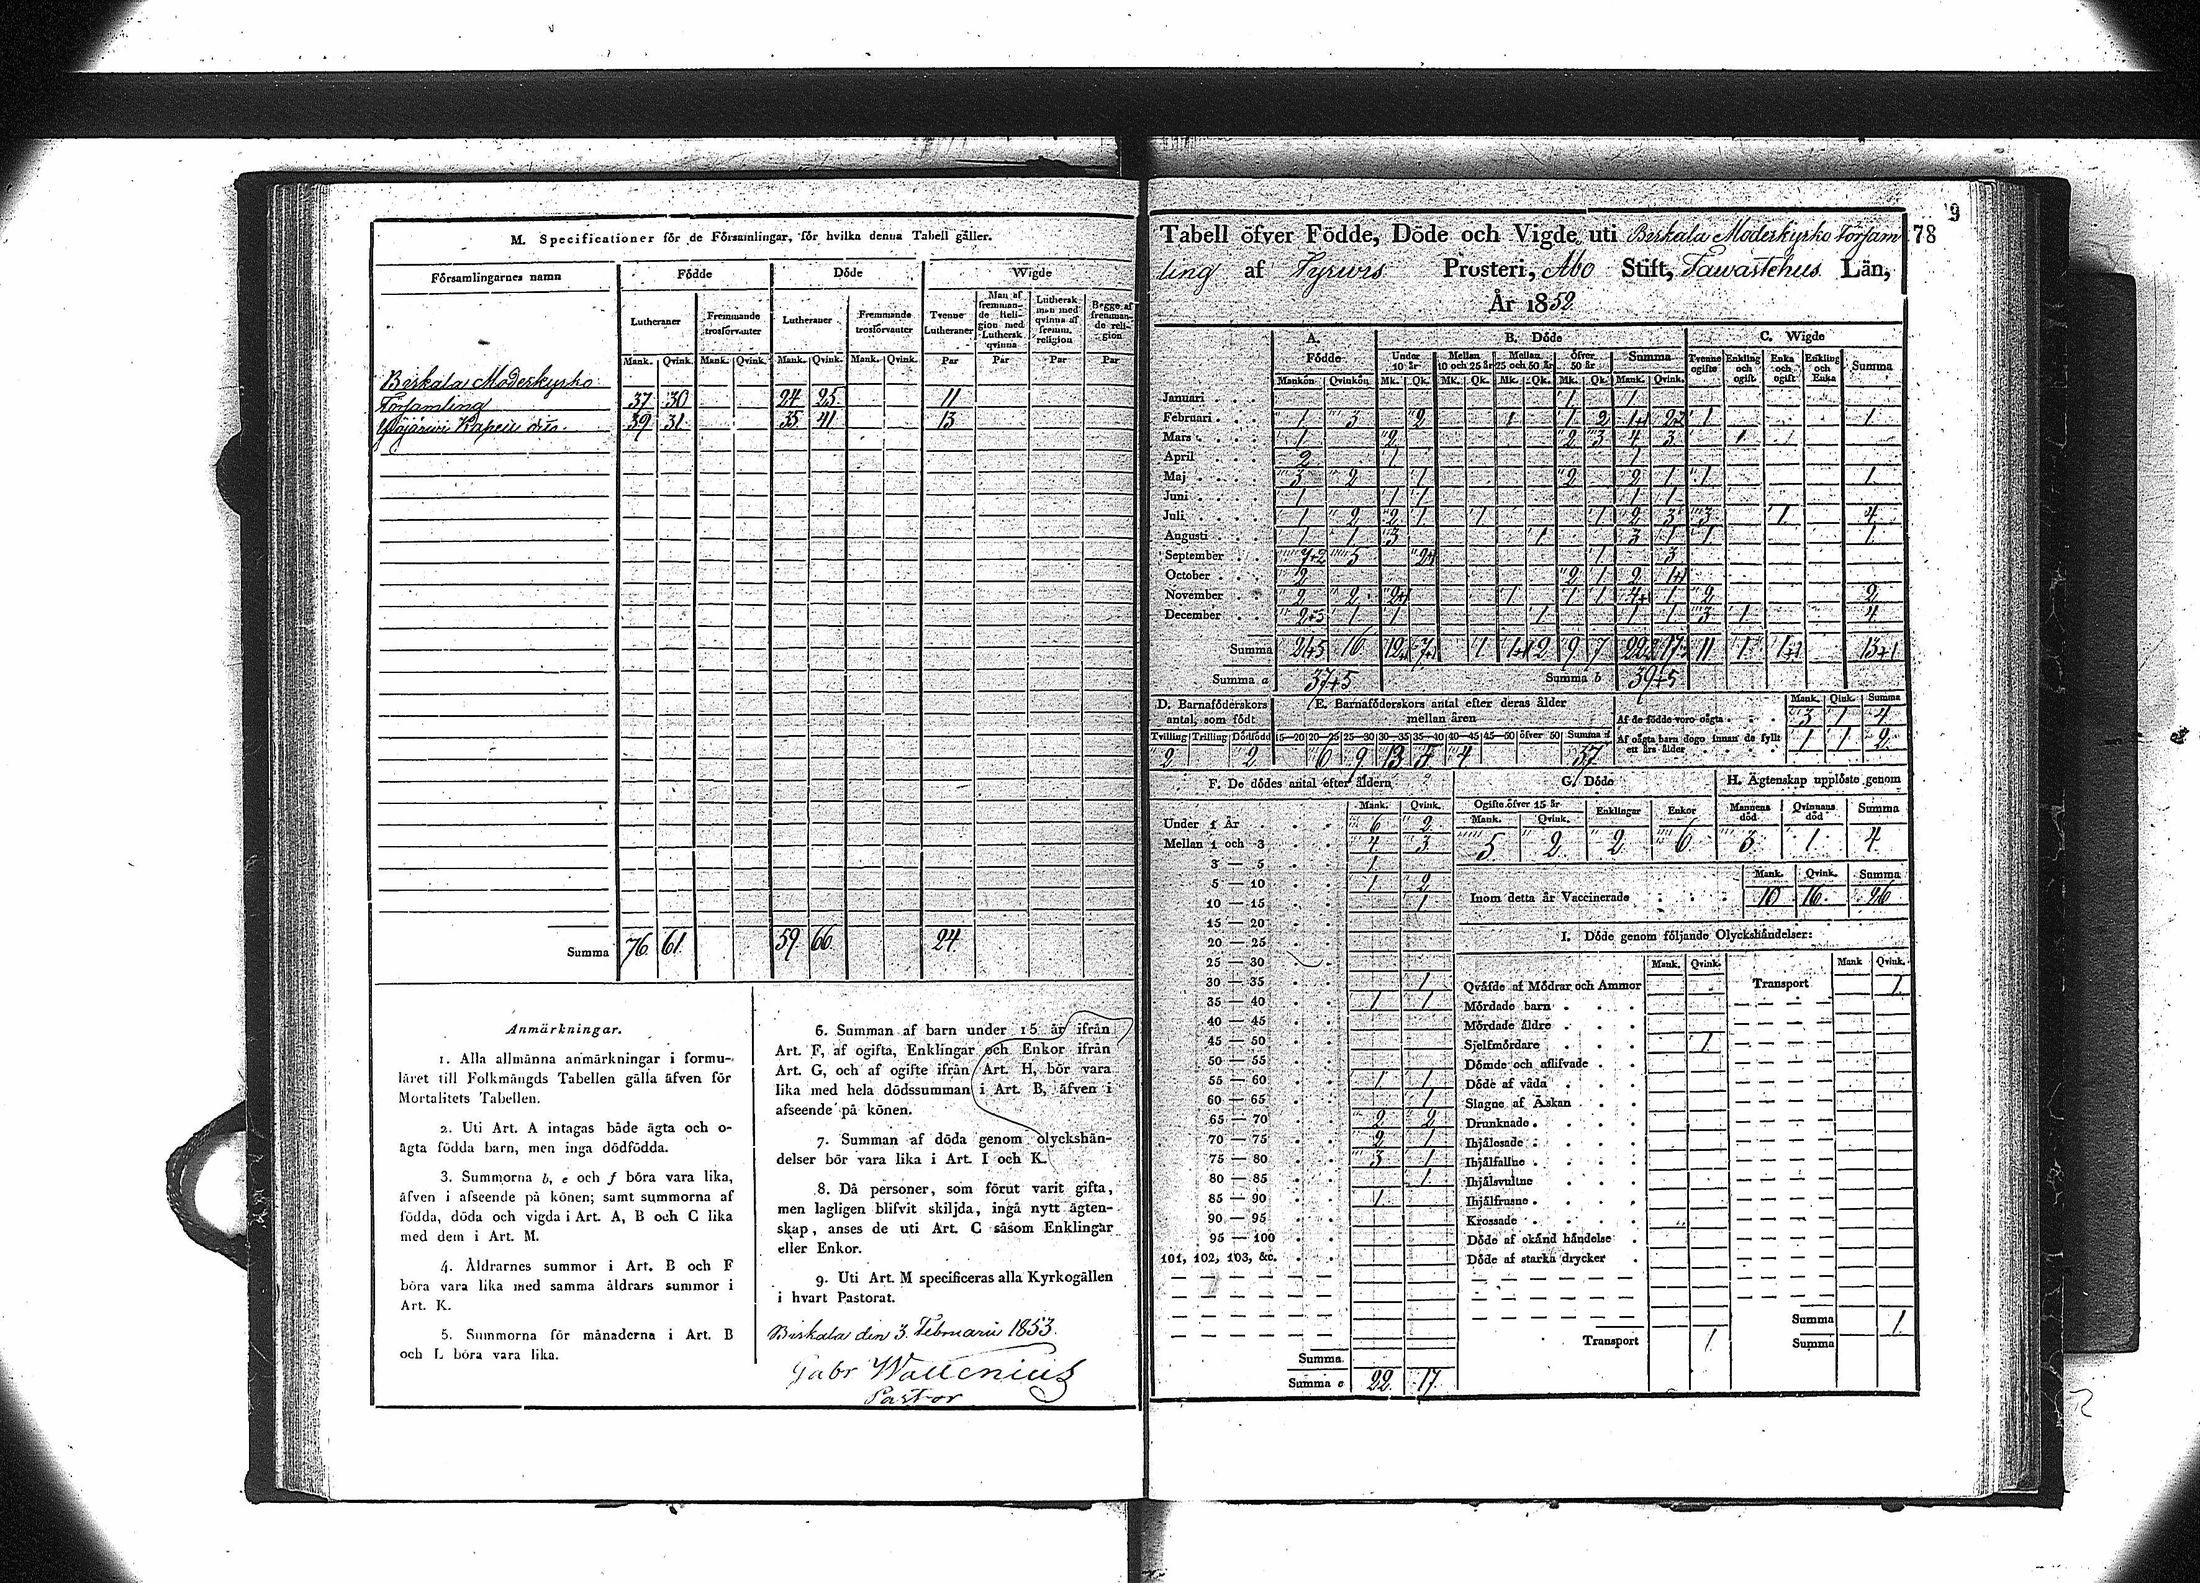 M. Specificationer för de Församlingar, för hvilka denna Tabell gäller.
Församlingarnes namn Födde Döde Wigde
Lutheraner Fremmande trosförvanter Lutheraner Fremmande trosförvanter Tvenne Lutheraner Man af fremmande Religion med Luthersk qvinna Luthersk man med qvinna af fremm. religion Begge af fremmande religion
Mank. Qvink. Mank. Qvink. Mank. Qvink. Mank. Qvink. Par Par Par Par
Birkala Moderkyrko
Församling 37 30 24 25 11
Ylöjärwi Kapell 39 31 35 41 13
Summa 76 61 59 66 24
Anmärkningar.
1. Alla allmänna anmärkningar i formu-
läret till Folkmängds Tabellen gälla äfven för
Mortalitets Tabellen.
2. Uti Art. A intagas både ägta och o-
ägta födda barn, men inga dödfödda.
3. Summorna b, e och f böra vara lika,
äfven i afseende på könen; samt summorna af
födda, döda och vigda i Art. A, B och C lika
med dem i Art. M.
4. Åldrarnes summor i Art. B och F
böra vara lika med samma åldrars summor i
Art. K.
5. Summorna för månaderna i Art. B
och L böra vara lika.
6. Summan af barn under 15 år ifrån
Art. F, af ogifta, Enklingar och Enkor ifrån
Art. G, och af ogifte ifrån Art. H, bör vara
lika med hela dödssumman i Art. B, äfven i
afseende på könen.
7. Summan af döda genom olyckshän-
delser bör vara lika i Art. I och K.
8. Då personer, som förut varit gifta,
men lagligen blifvit skiljda, ingå nytt ägten-
skap, anses de uti Art. C såsom Enklingar
eller Enkor.
9. Uti Art. M specificeras alla Kyrkogällen
i hvart Pastorat.
Birkala den 3. Februarii 1853.
Gabr Wallenius
Pastor
9
78
Tabell öfver Födde, Döde och Vigde uti Birkala Moderkyrko Försam
ling af Tyrwis Prosteri, Åbo Stift, Tawastehus Län,
År 1852
A. Födde B. Döde C. Wigde
Under 10 år Mellan 10 och 25 år Mellan 25 och 50 år Öfver 50 år Summa Tvenne ogifte Enkling och ogift Enka och ogift Enkling och Enka Summa
Mankön Qvinkön Mk. Qk. Mk. Qk. Mk. Qk. Mk. Qk. Mank. Qvink.
Januari 1 1
Februari 1 3 2 1 1 2 1+1 2+2 1 1
Mars 1 2 2 3 4 3 1
April 2 1 1
Maj 3 2 1 2 2 1 1 1
Juni 1 1 1 1 1
Juli 1 2 2 1 1 1 2 3 3 1 4
Augusti 1 1 3 1 3 1 1 1
September 5 1 3
October 2 2 1 2 1+1
November 2 2 2+1 1 1 1 4+1 1 2 2
December 2+3 1 1 1 1 1 3 1 4
Summa 21+5 16 1 9 7 11 1 13+1
Summa a 37+5 Summa b 39+5
D. Barnaföderskors antal, som födt
E. Barnaföderskors antal efter deras ålder mellan åren
Tvilling Trilling Dödfödd 15—20 20—25 25—30 30—35 35—40 40—45 45—50 öfver 50 Summa d
2 2 6 9 13 5 4 37
Mank. Qink. Summa
Af de födde voro oägta 3 1 4
Af oägta barn dogo innan de fyllt ett års ålder 1 1 2
F. De dödes antal efter åldern
Mank. Qvink.
Under 1 År 6 2
Mellan 1 och 3 4 3
3 — 5 1
5 — 10 1 2
10 — 15 1
15 — 20
20 — 25
25 — 30
30 — 35 1
35 — 40 1 1
40 — 45
45 — 50
50 — 55
55 — 60 1 1
60 — 65 1
65 — 70 2 2
70 — 75 2 1
75 — 80 3 1
80 — 85 1
85 — 90 1
90 — 95
95 — 100
101, 102, 103, &c.
Summa
Summa e 22 17
G. Döde
Ogifte öfver 15 år Enklingar Enkor
Mank. Qvink.
5 2 2 6
H. Ägtenskap upplöste genom
Mannens död Qvinnans död Summa
3 1 4
Mank. Qvink. Summa
Inom detta år Vaccinerade 10 16 26
I. Döde genom följande Olyckshändelser:
Mank. Qvink. Mank Qvink.
Qväfde af Mödrar och Ammor Transport 1
Mördade barn
Mördade äldre
Sjelfmördare 1
Dömde och aflifvade
Döde af våda
Slagne af Åskan
Drunknade
Ihjälosade
Ihjälfallne
Ihjälsvultne
Ihjälfrusne
Krossade
Döde af okänd händelse
Döde af starka drycker
Summa 1
Transport 1 Summa